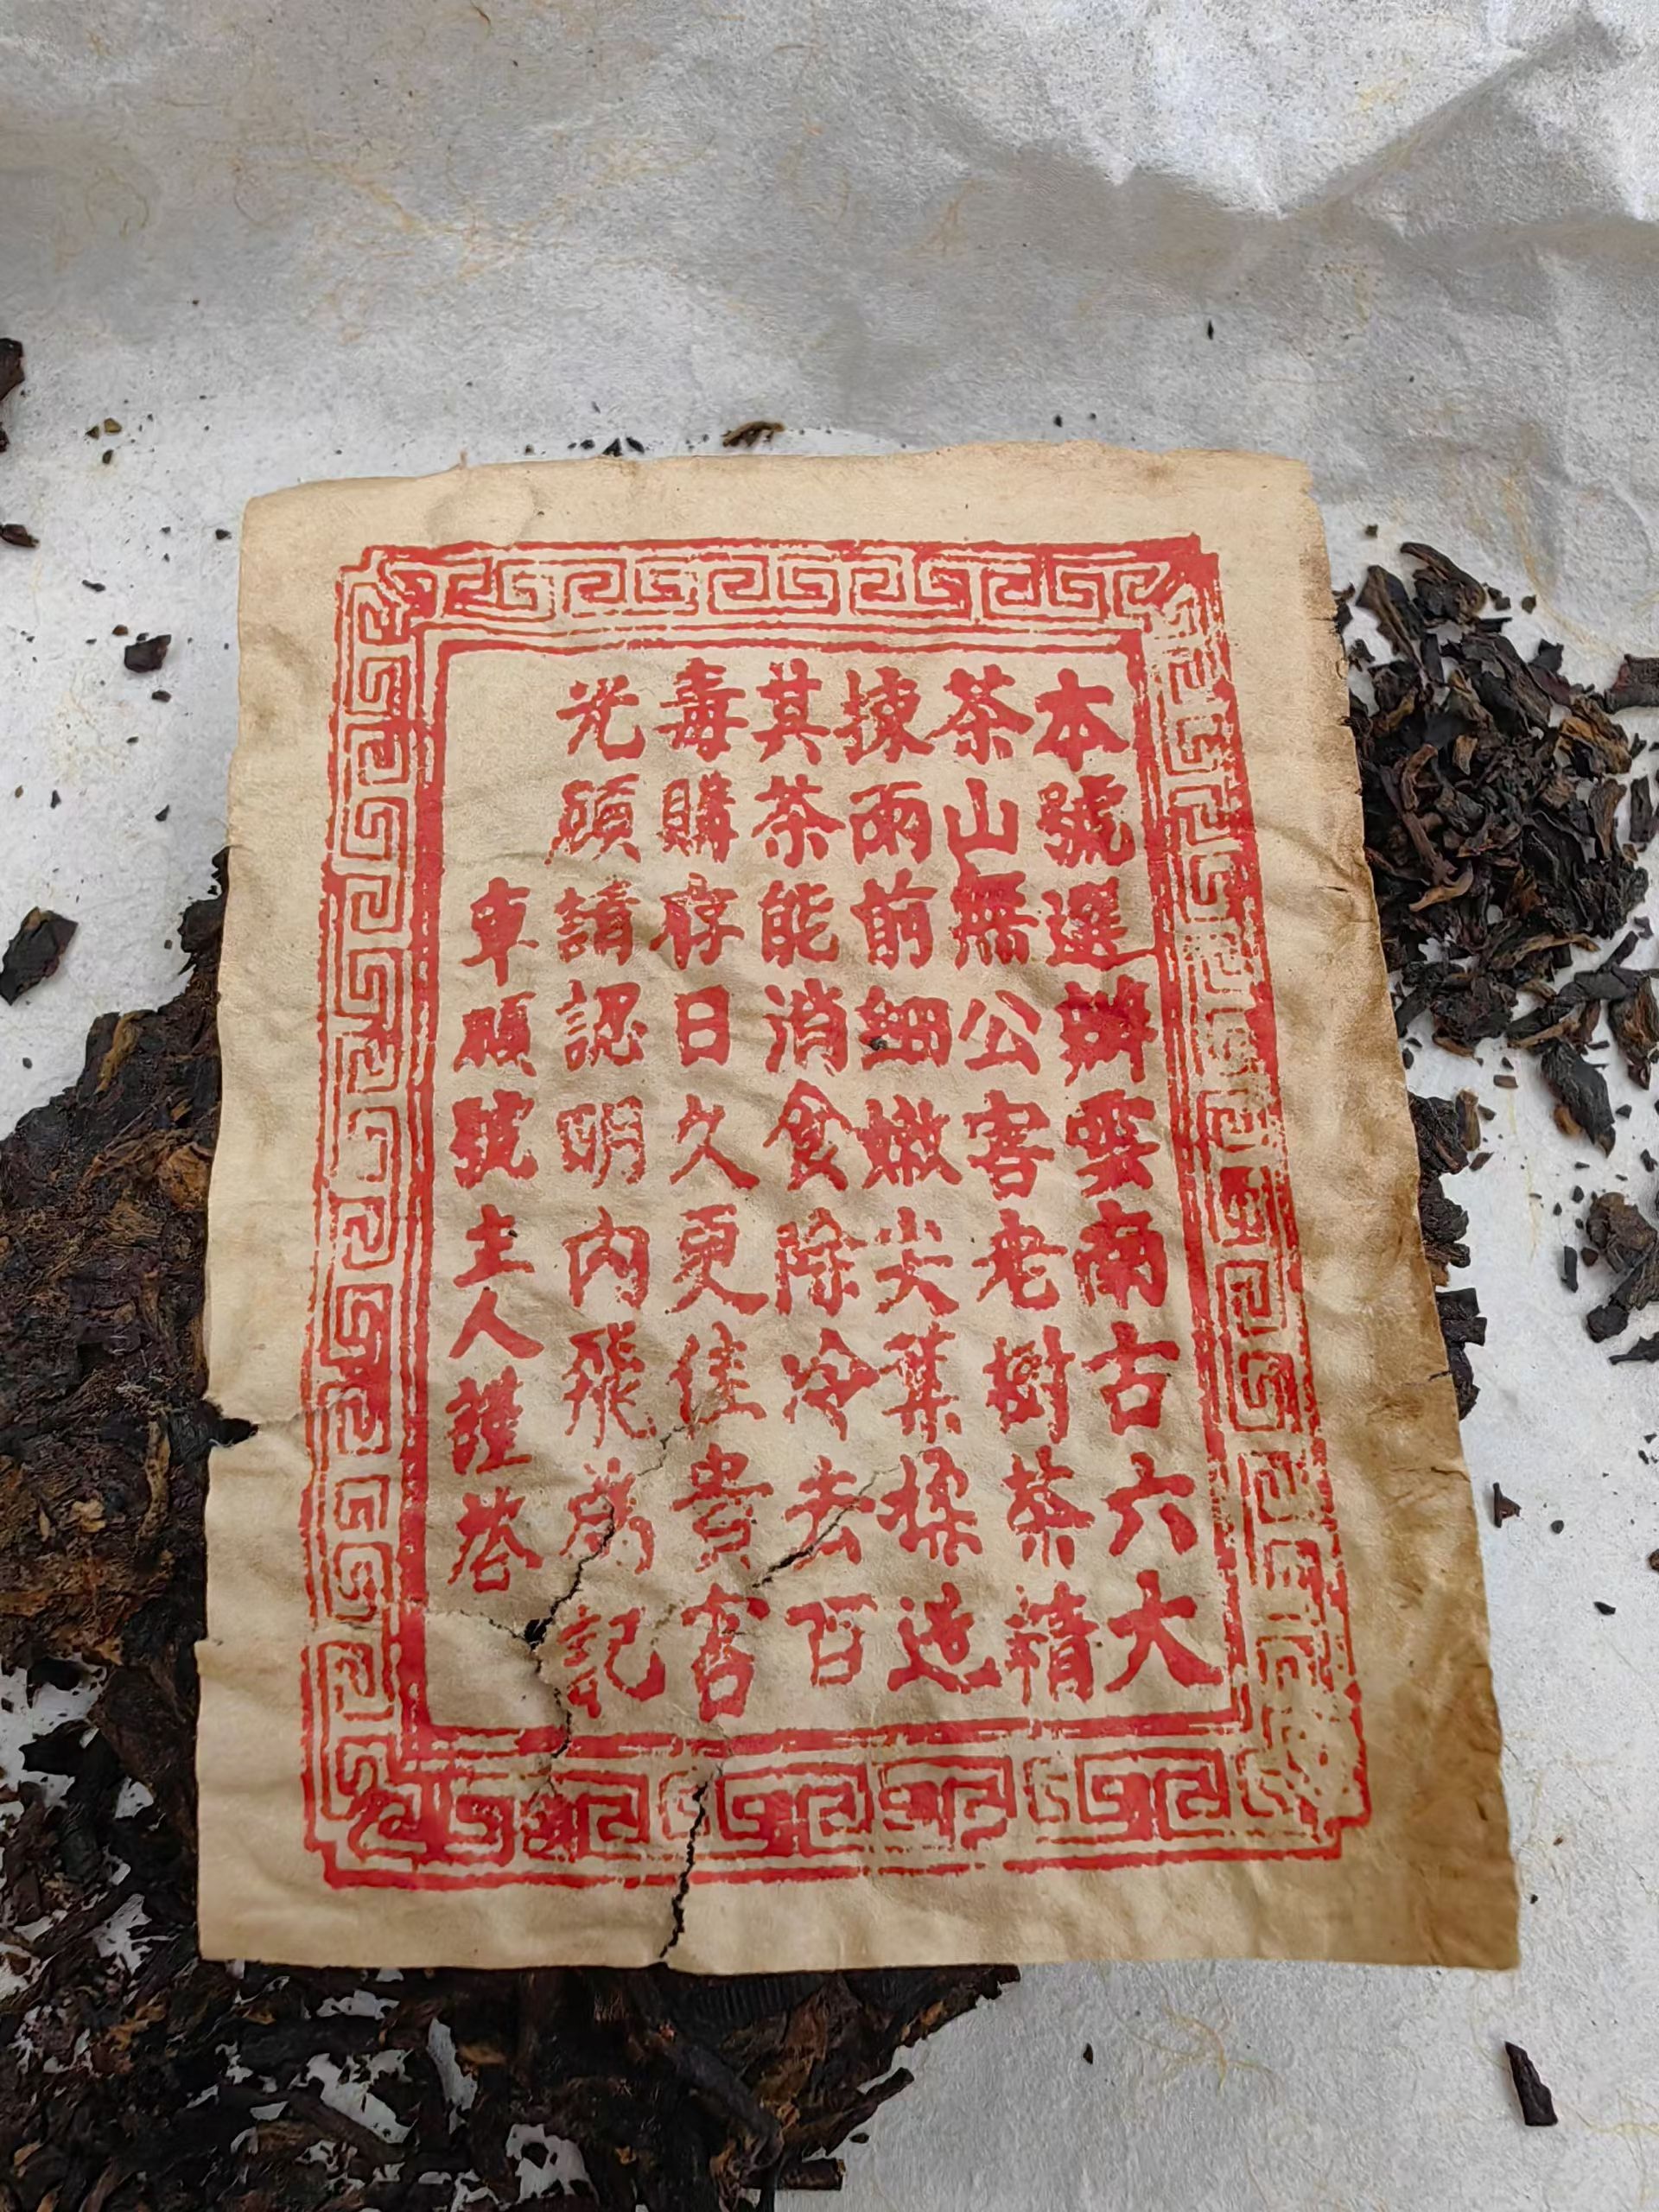 本號選辦雲南古六大
茶山無公害老樹茶精
揀雨前細嫩尖葉揉造
其茶能消食除冷去百
毒購存日久更佳貴客
光顧請認明內飛為記
車順號主人謹